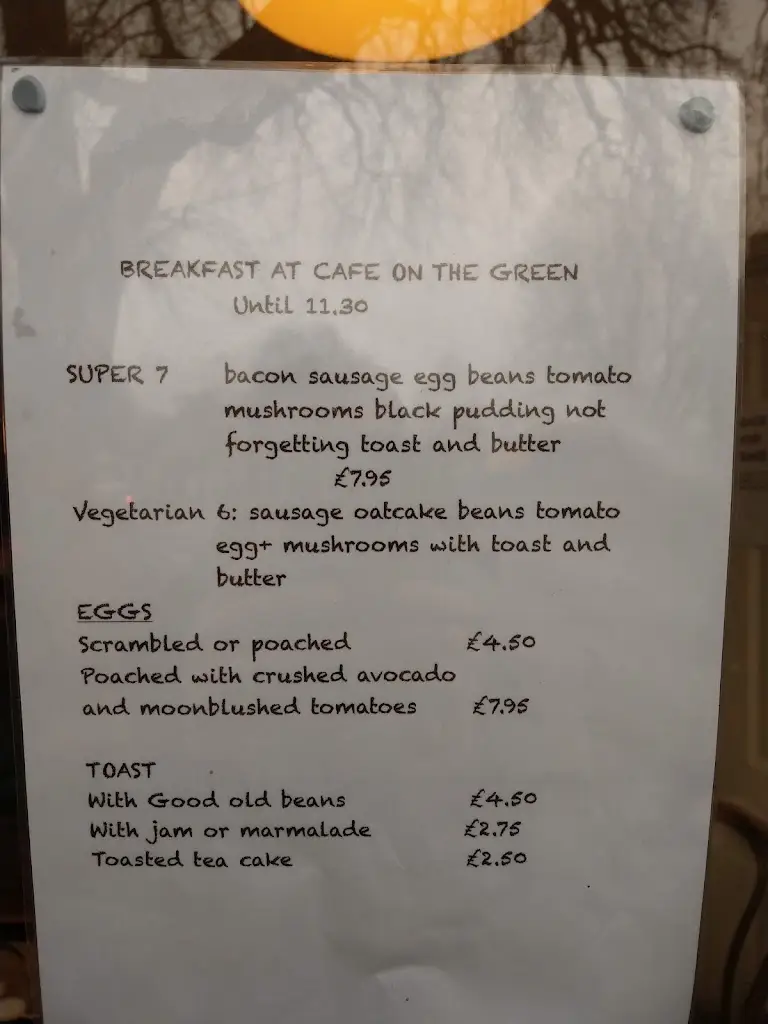 BREAKFAST AT CAFE ON THE GREEN
Until 11.30
SUPER 7 bacon sausage egg beans tomato
mushrooms black pudding not
forgetting toast and butter
£7.95
Vegetarian 6: sausage oatcake beans tomato
egg+ mushrooms with toast and
butter
EGGS
Scrambled or poached £4.50
Poached with crushed avocado
and moonblushed tomatoes £7.95
TOAST
With Good old beans £4.50
With jam or marmalade £2.75
Toasted tea cake £2.50